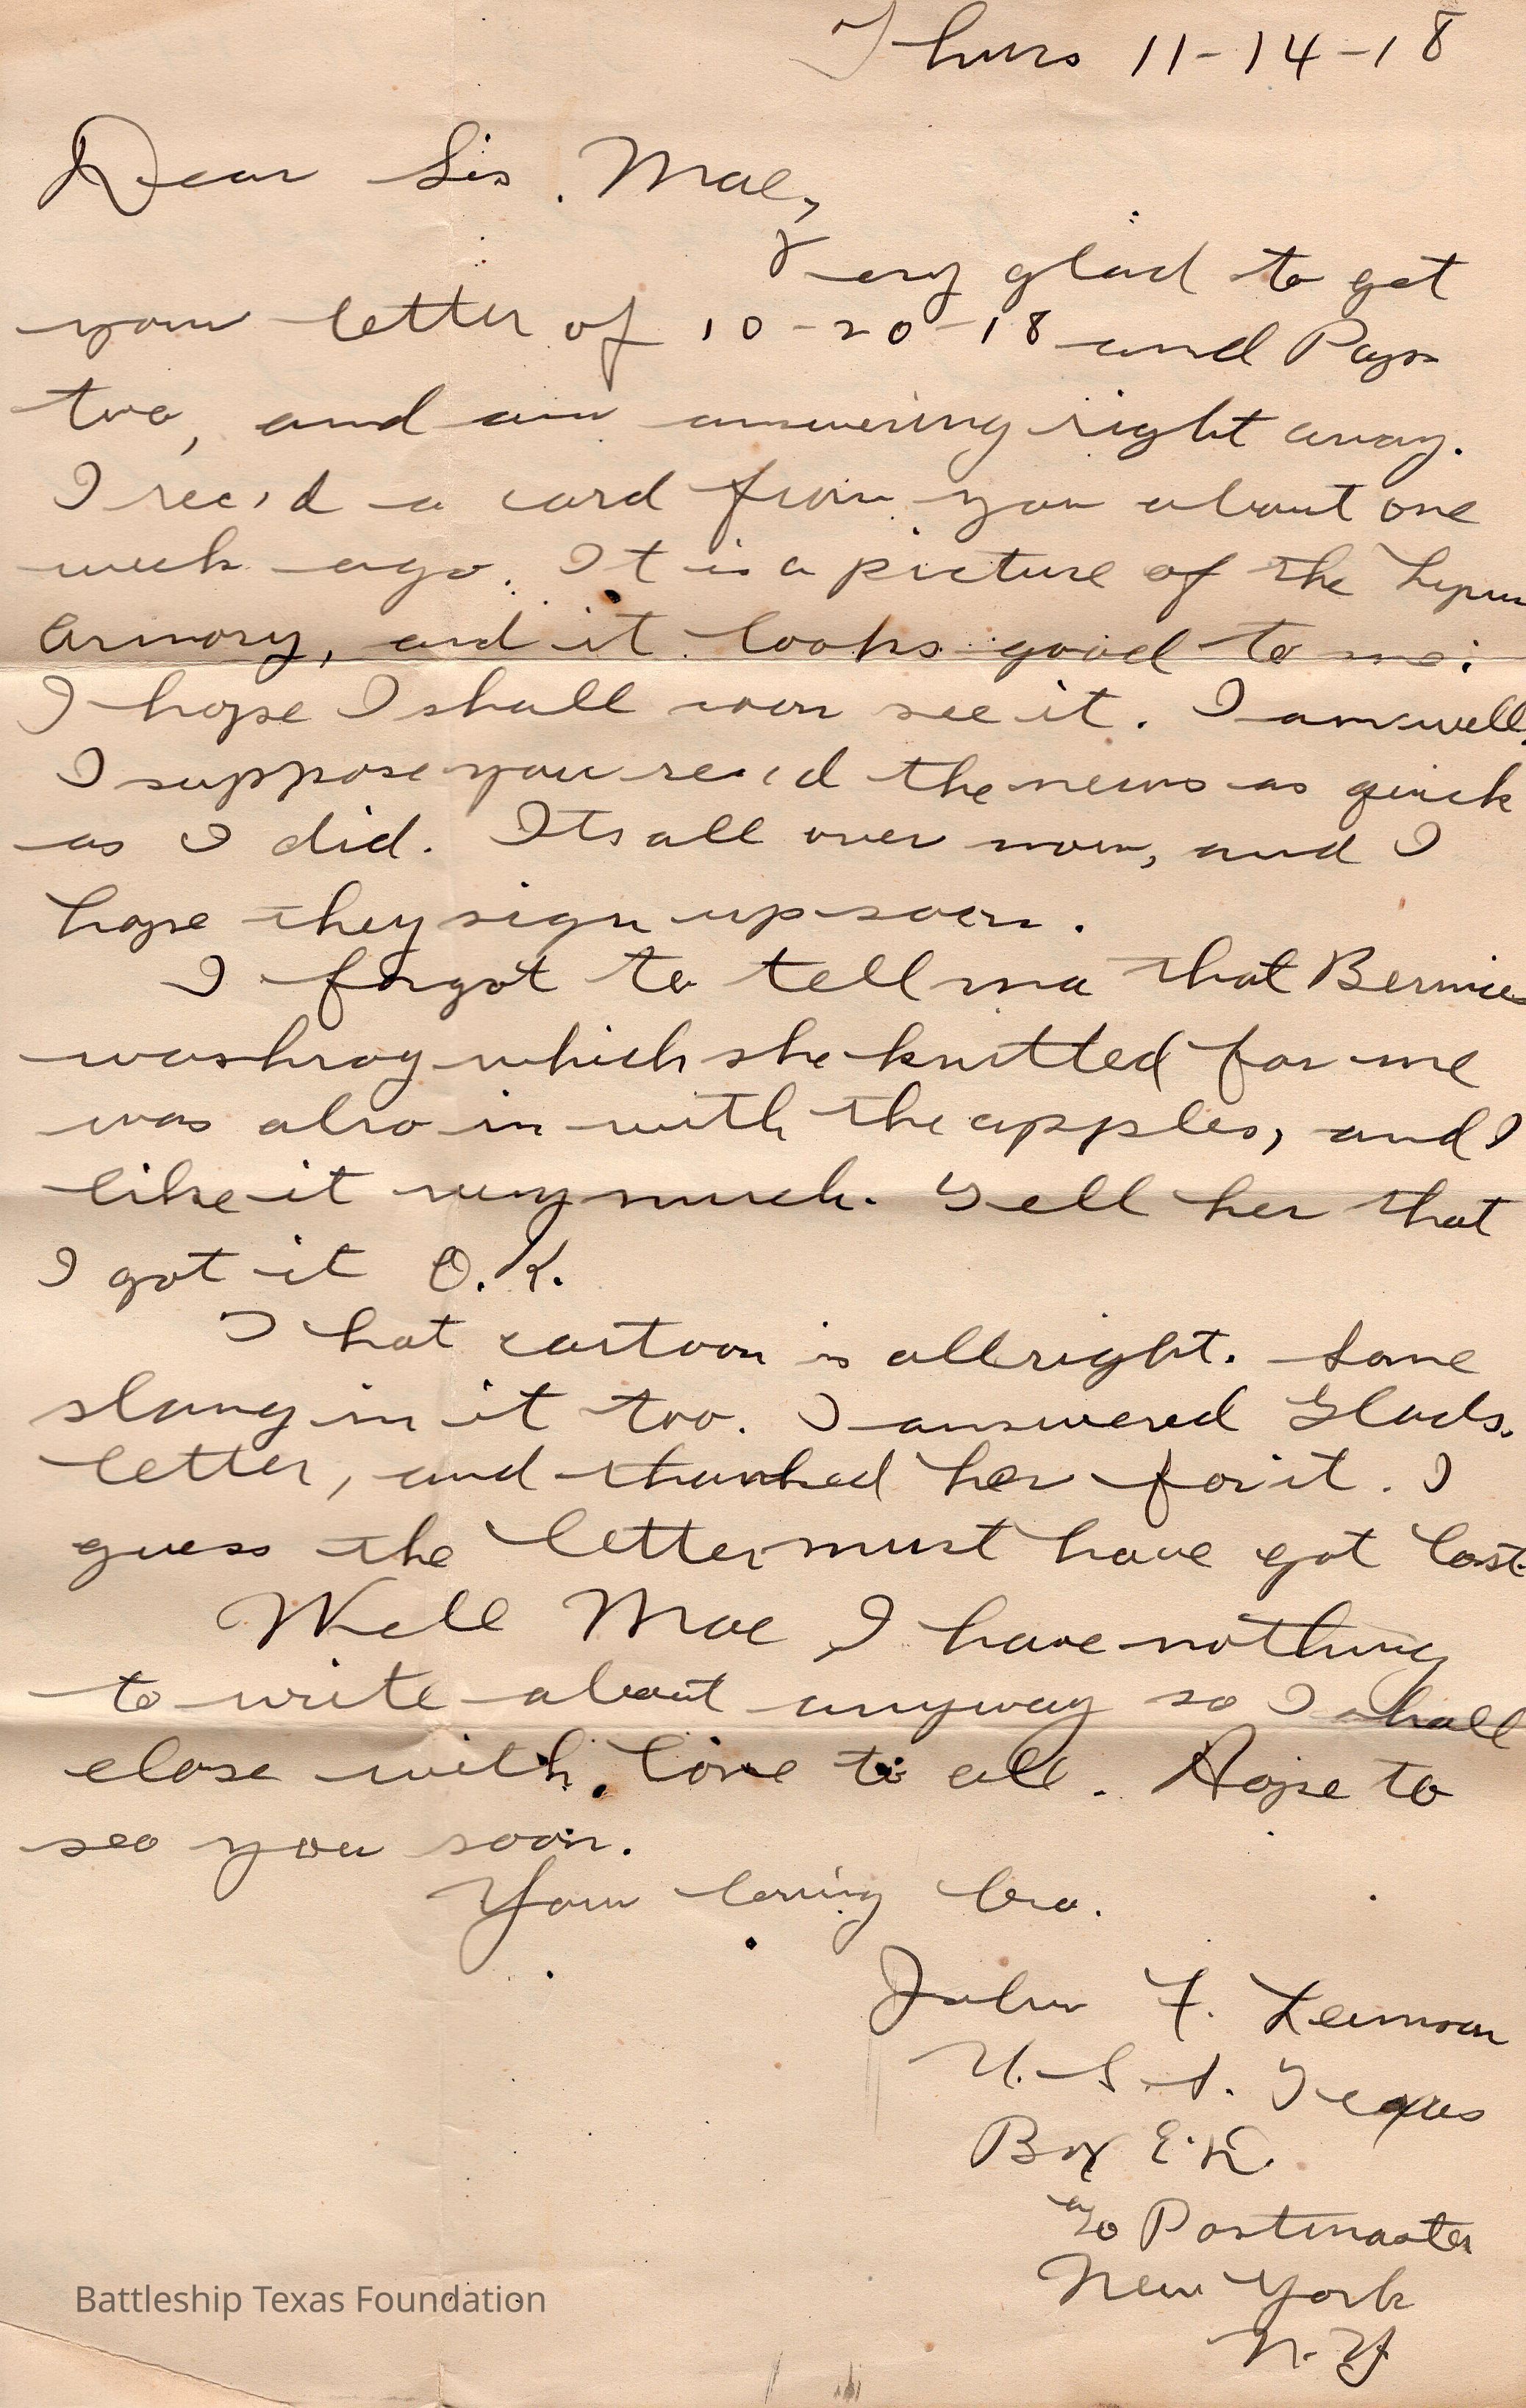 Thurs 11-14-18
Dear Sis. Mae,
Very glad to get
your letter of 10-20-18 and Pa's
two, and am answering right away.
I rec'd a card from you about one
week ago. It is a picture of the
Armory, and it looks good to me.
I hope I shall soon see it. I am well.
I suppose you rec'd the news as quick
as I did. Its all over now, and I
hope they sign up soon.
I forgot to tell ma that Bernices
washrag which she knitted for me
was also in with the apples, and I
like it very much. Tell her that
I got it O.K.
That cartoon is allright. Some
slang in it too. I answered Glads.
letter, and thanked her for it. I
guess the letter must have got lost.
Well Mae I have nothing
to write about anyway so I shall
close with love to all. Hope to
see you soon.
Your loving bro.
John F.
U.S.S. Texas
Box E.K.
c/o Postmaster
New York
N.Y.
Battleship Texas Foundation